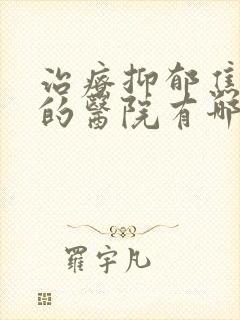 治疗抑郁焦
的醫院有哪
羅宇凡